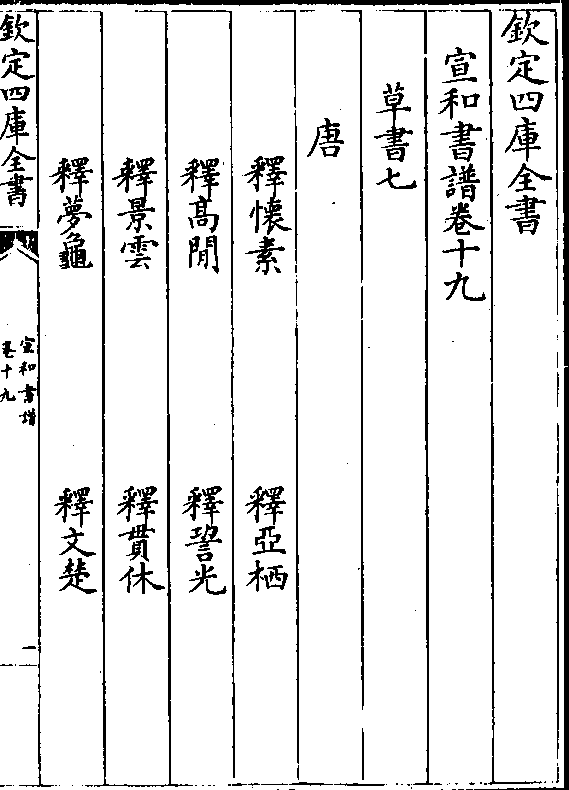 欽定四庫全書
宣和書譜卷十九
草書七
唐
釋懷素 釋亞栖
釋高閒 釋䛒光
釋景雲 釋貫休
釋夢龜 釋文楚
欽定四庫全書
宣和書譜
卷十九
一